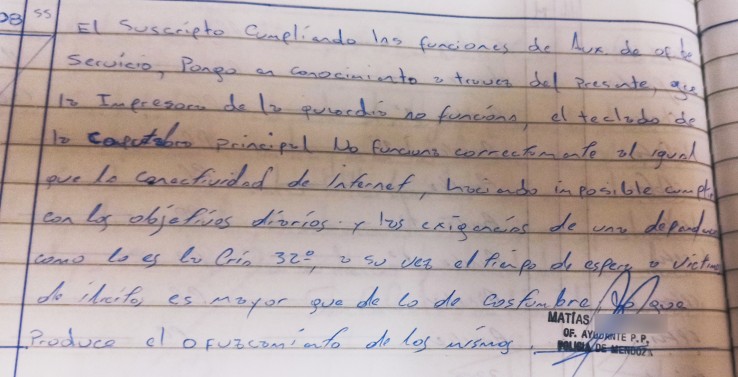 08 55
El Suscripto Cumpliendo las funciones de Aux de of de
Servicio, Pongo en conocimiento a traves del presente, que
la Impresora de la guardia no funciona, el teclado de
la principal No funciona correctamente al igual
que la conectividad de Internet, haciendo imposible cumplir
con los objetivos diarios y las exigencias de una
como lo es la Cria 32º, a su vez el tiempo de espera a victima
de ilicito, es mayor que de lo de costumbre, lo que
Produce el ofuzcamiento de los mismos.
MATÍAS
OF. AYUDANTE P.P.
POLICIA DE MENDOZA